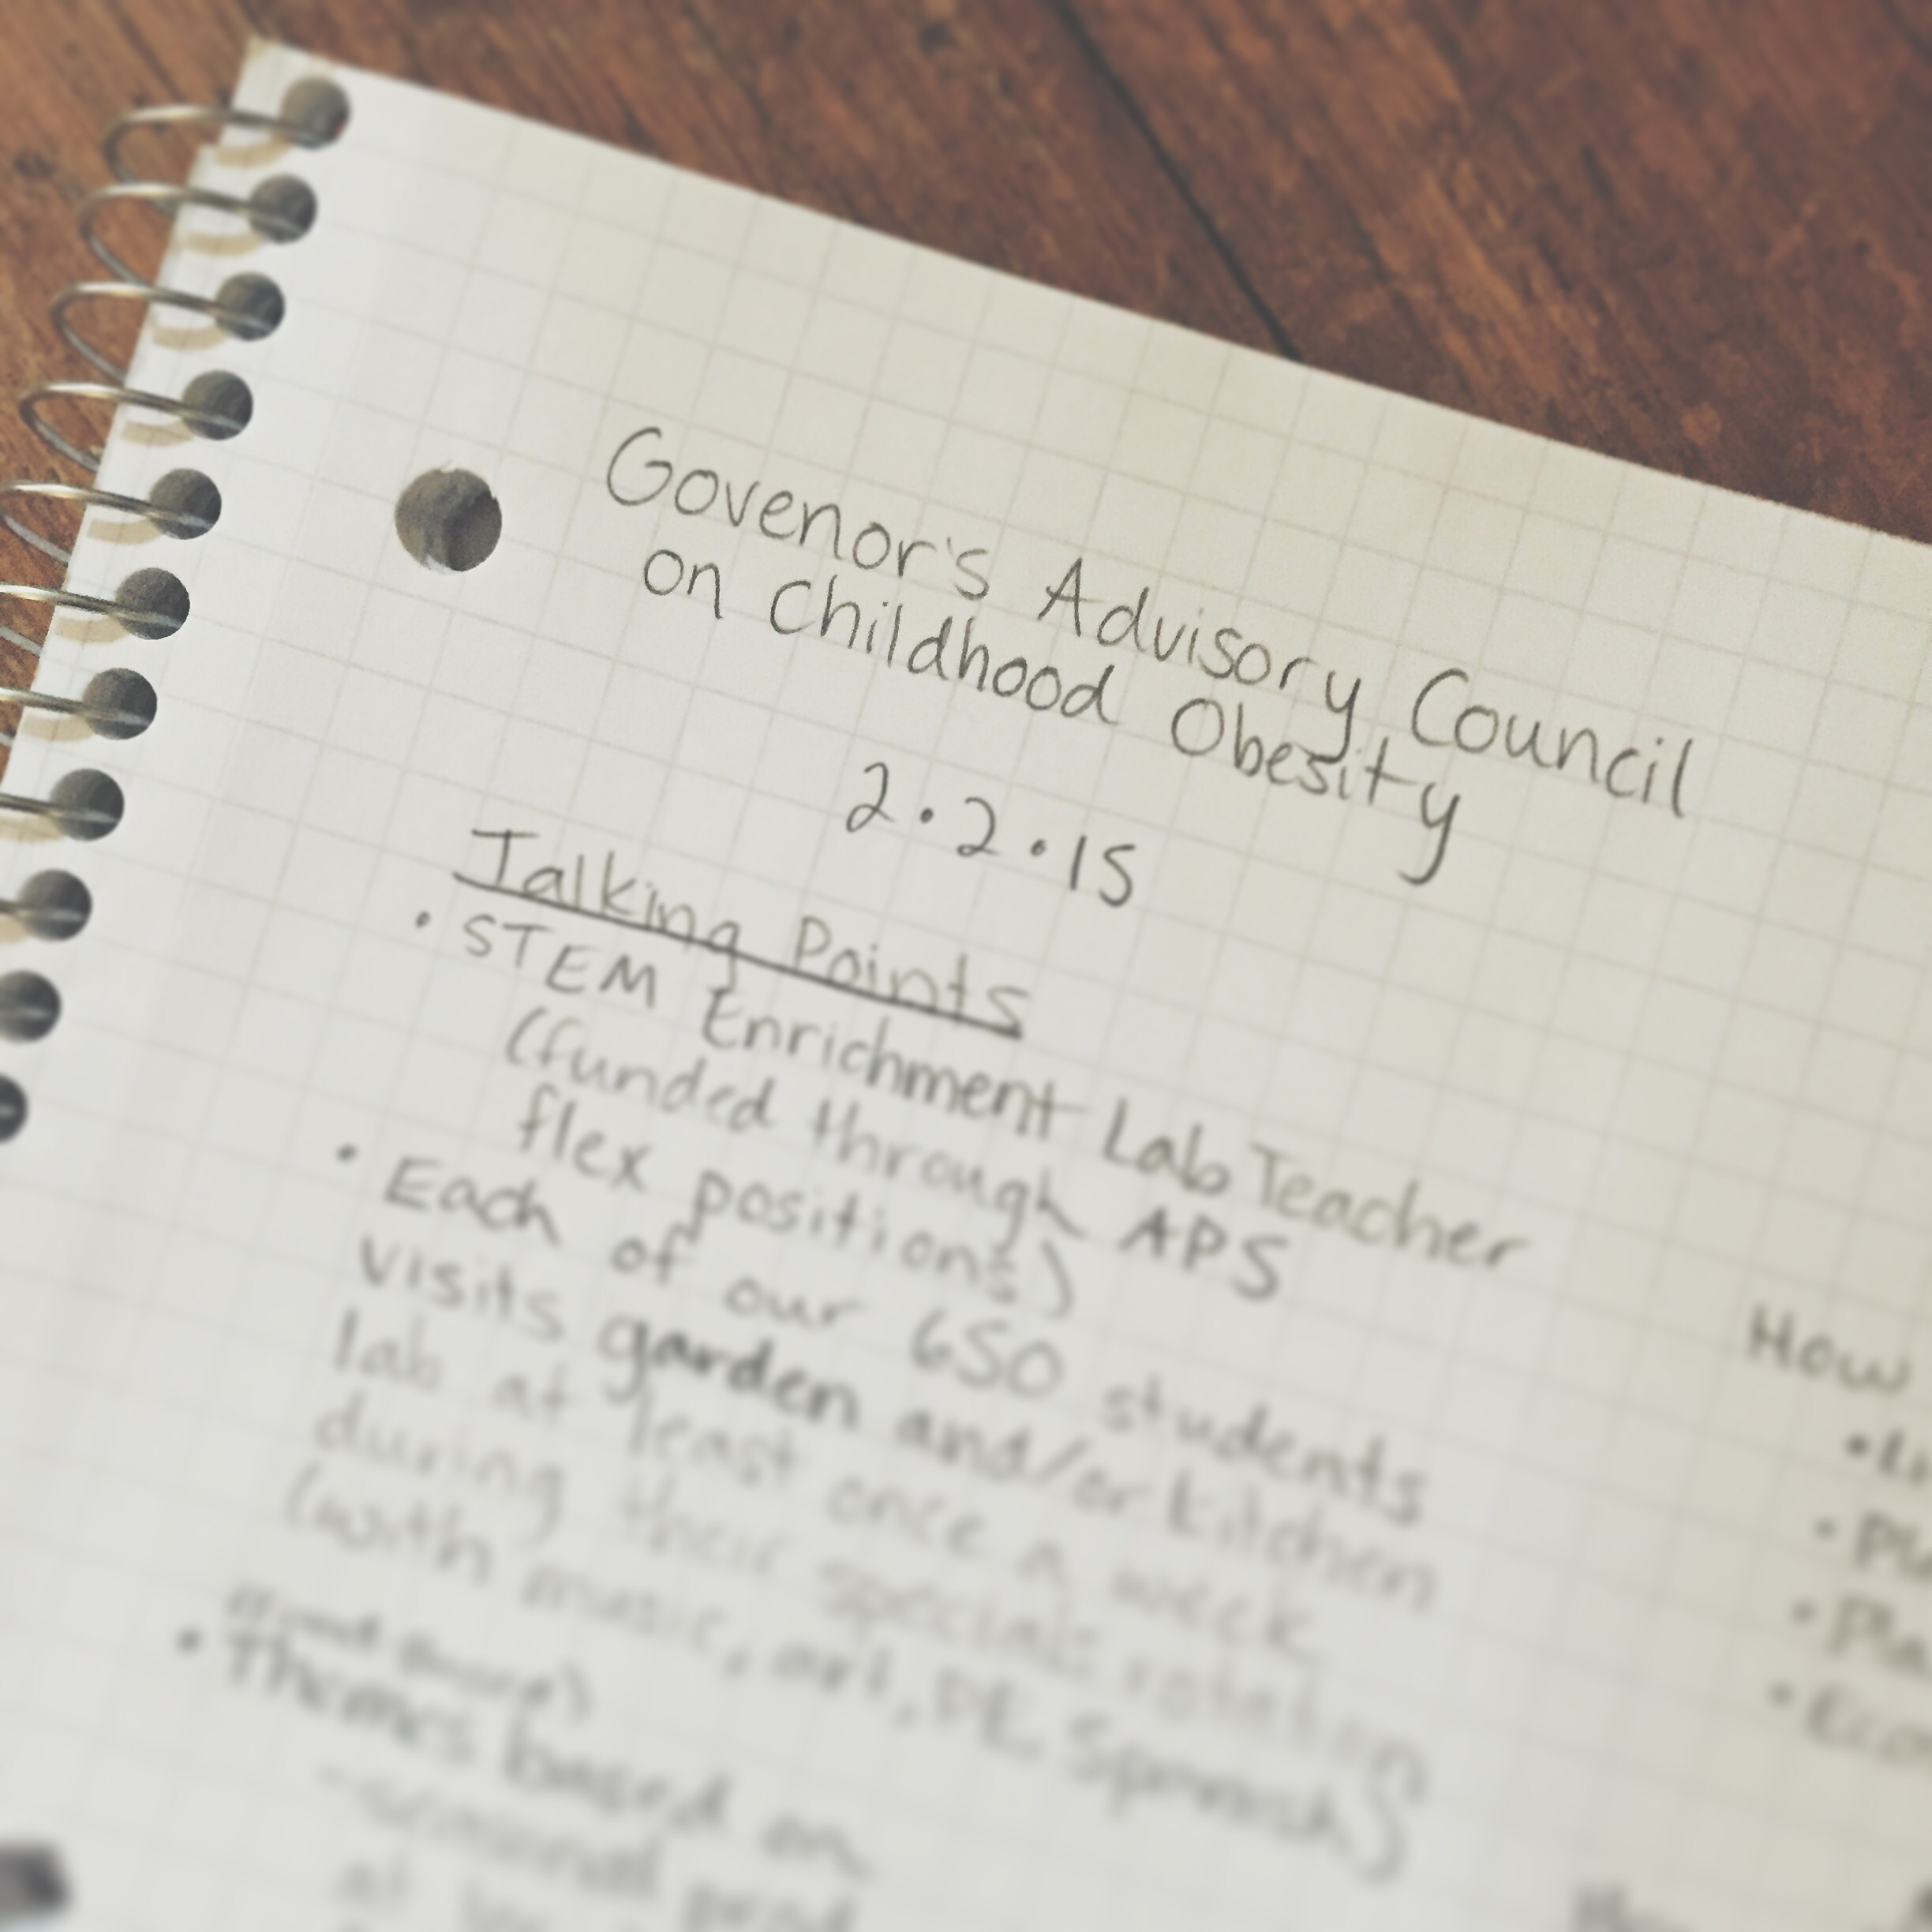 Govenor's Advisory Council
on Childhood Obesity
2.2.15
Talking Points
• STEM Enrichment Lab Teacher
(funded through APS
flex positions)
• Each of our 650 students
visits garden and/or kitchen
lab at least once a week
during their specials rotation
(with music, art, PE, Spanish)
• Themes based on
-seasonal
at
How